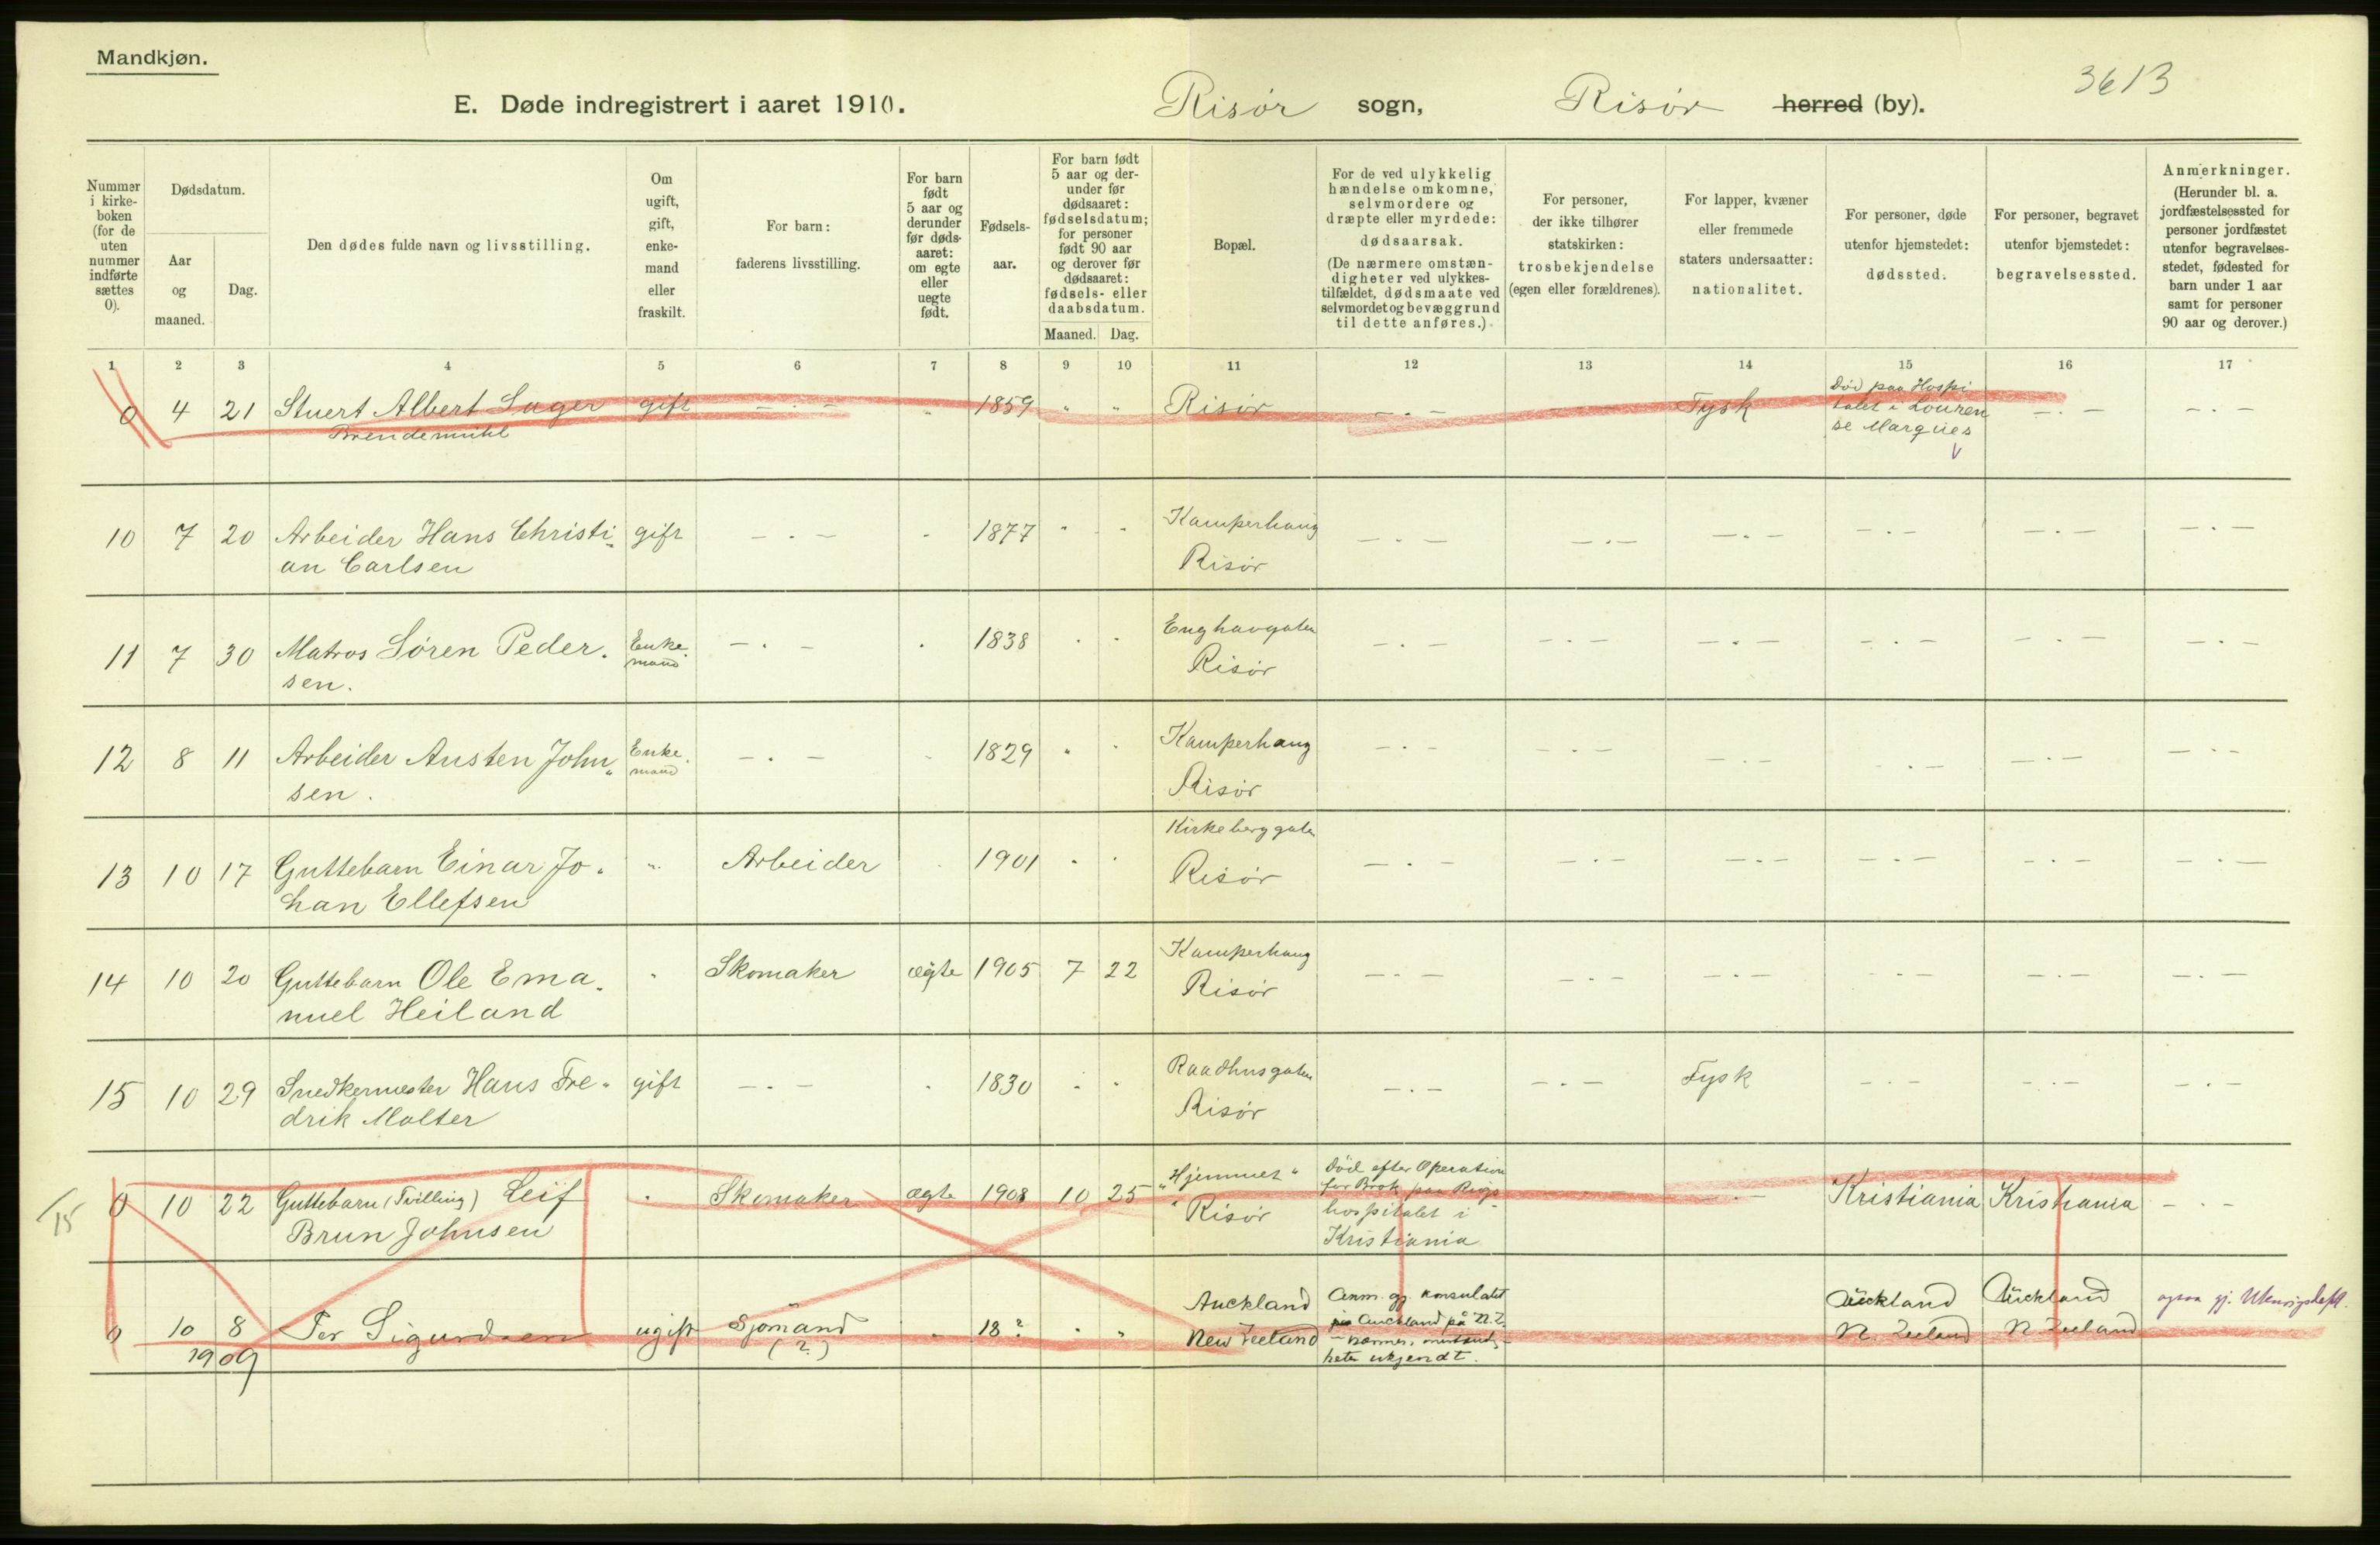 Mandkjøn.
3613
E. Døde indregistrert i aaret 1910. Risør sogn, Risør herred (by).
Nummer i kirke-boken (for de uten nummer indførte sættes 0).
Dødsdatum.
Aar og maaned.
Dag.
Den dødes fulde navn og livsstilling.
Om ugift, gift, enke-mand eller fraskilt.
For barn: faderens livsstilling.
For barn født 5 aar og derunder før døds-aaret: om egte eller uegte født.
Fødsels-aar.
For barn født 5 aar og der-under før dødsaaret: fødselsdatum; for personer født 90 aar og derover før dødsaaret: fødsels- eller daabsdatum.
Maaned. Dag.
Bopæl.
For de ved ulykkelig hændelse omkomne, selvmordere og dræpte eller myrdede: dødsaarsak. (De nærmere omstæn-digheter ved ulykkes-tilfældet, dødsmaate ved selvmordet og bevæggrund til dette anføres.)
For personer, der ikke tilhører statskirken: trosbekjendelse (egen eller forældrenes).
For lapper, kvæner eller fremmede staters undersaatter: nationalitet.
For personer, døde utenfor hjemstedet: dødssted.
For personer, begravet utenfor hjemstedet: begravelsessted.
Anmerkninger. (Herunder bl. a. jordfæstelsessted for personer jordfæstet utenfor begravelses-stedet, fødested for barn under 1 aar samt for personer 90 aar og derover.)
1 2 3 4 5 6 7 8 9 10 11 12 13 14 15 16 17
0 4 21 Stuert Albert Lager gift - . - " 1859 " " Risør - . - Tysk Død paa Hospi - . - - . -
Brendemühl talet i Louren
se Marques
10 7 20 Arbeider Hans Christi gift - . - " 1877 " " Kamperhaug - . - - . - - . - - . - - . - - . -
an Carlsen Risør
11 7 30 Matros Søren Peder. Enke. - . - . 1838 . . Enghavgaten - . - - . - - . - - . - - . - - . -
sen. mand Risør
12 8 11 Arbeider Austen John Enke. - . - . 1829 " . Kamperhaug - . - - . - - . - - . - - . - - . -
sen. mand Risør
13 10 17 Guttebarn Einar Jo. " Arbeider . 1901 . . Kirkeberggaten - . - - . - - . - - . - - . - - . -
han Ellefsen Risør
14 10 20 Guttebarn Ole Ema. " Skomaker ægte 1905 7 22 Kamperhaug - . - - . - - . - - . - - . - - . -
nuel Heiland Risør
15 10 29 Snedkermester Hans Fre" gift - . - . 1830 . " Raadhusgaten - . - - . - Tysk - . - - . - - . -
drik Molter Risør
/15 0 10 22 Guttebarn (Tvilling) Leif . Skomaker ægte 1908 10 25 "Hjemmet" Død efter Operation - . - Kristiania Kristiania - . -
Brun Johnsen Risør for Brok paa Rigs
hospitalet i
Kristiania
0 10 8 Per Sigurdsen ugift Sjømand " 18? . " Auckland Anm. gj. konsulatet Auckland Auckland
1909 (?) New Zeeland Auckland på N.Z. N. Zeeland N. Zeeland
ukjendt.